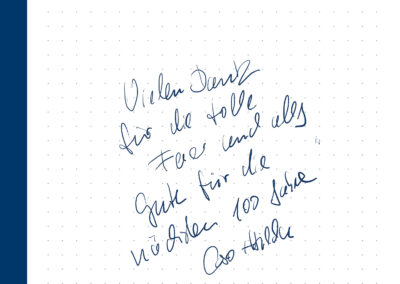 Vielen Dank
für die tolle
Feier und alles
Gute für die
nächsten 100 Jahre